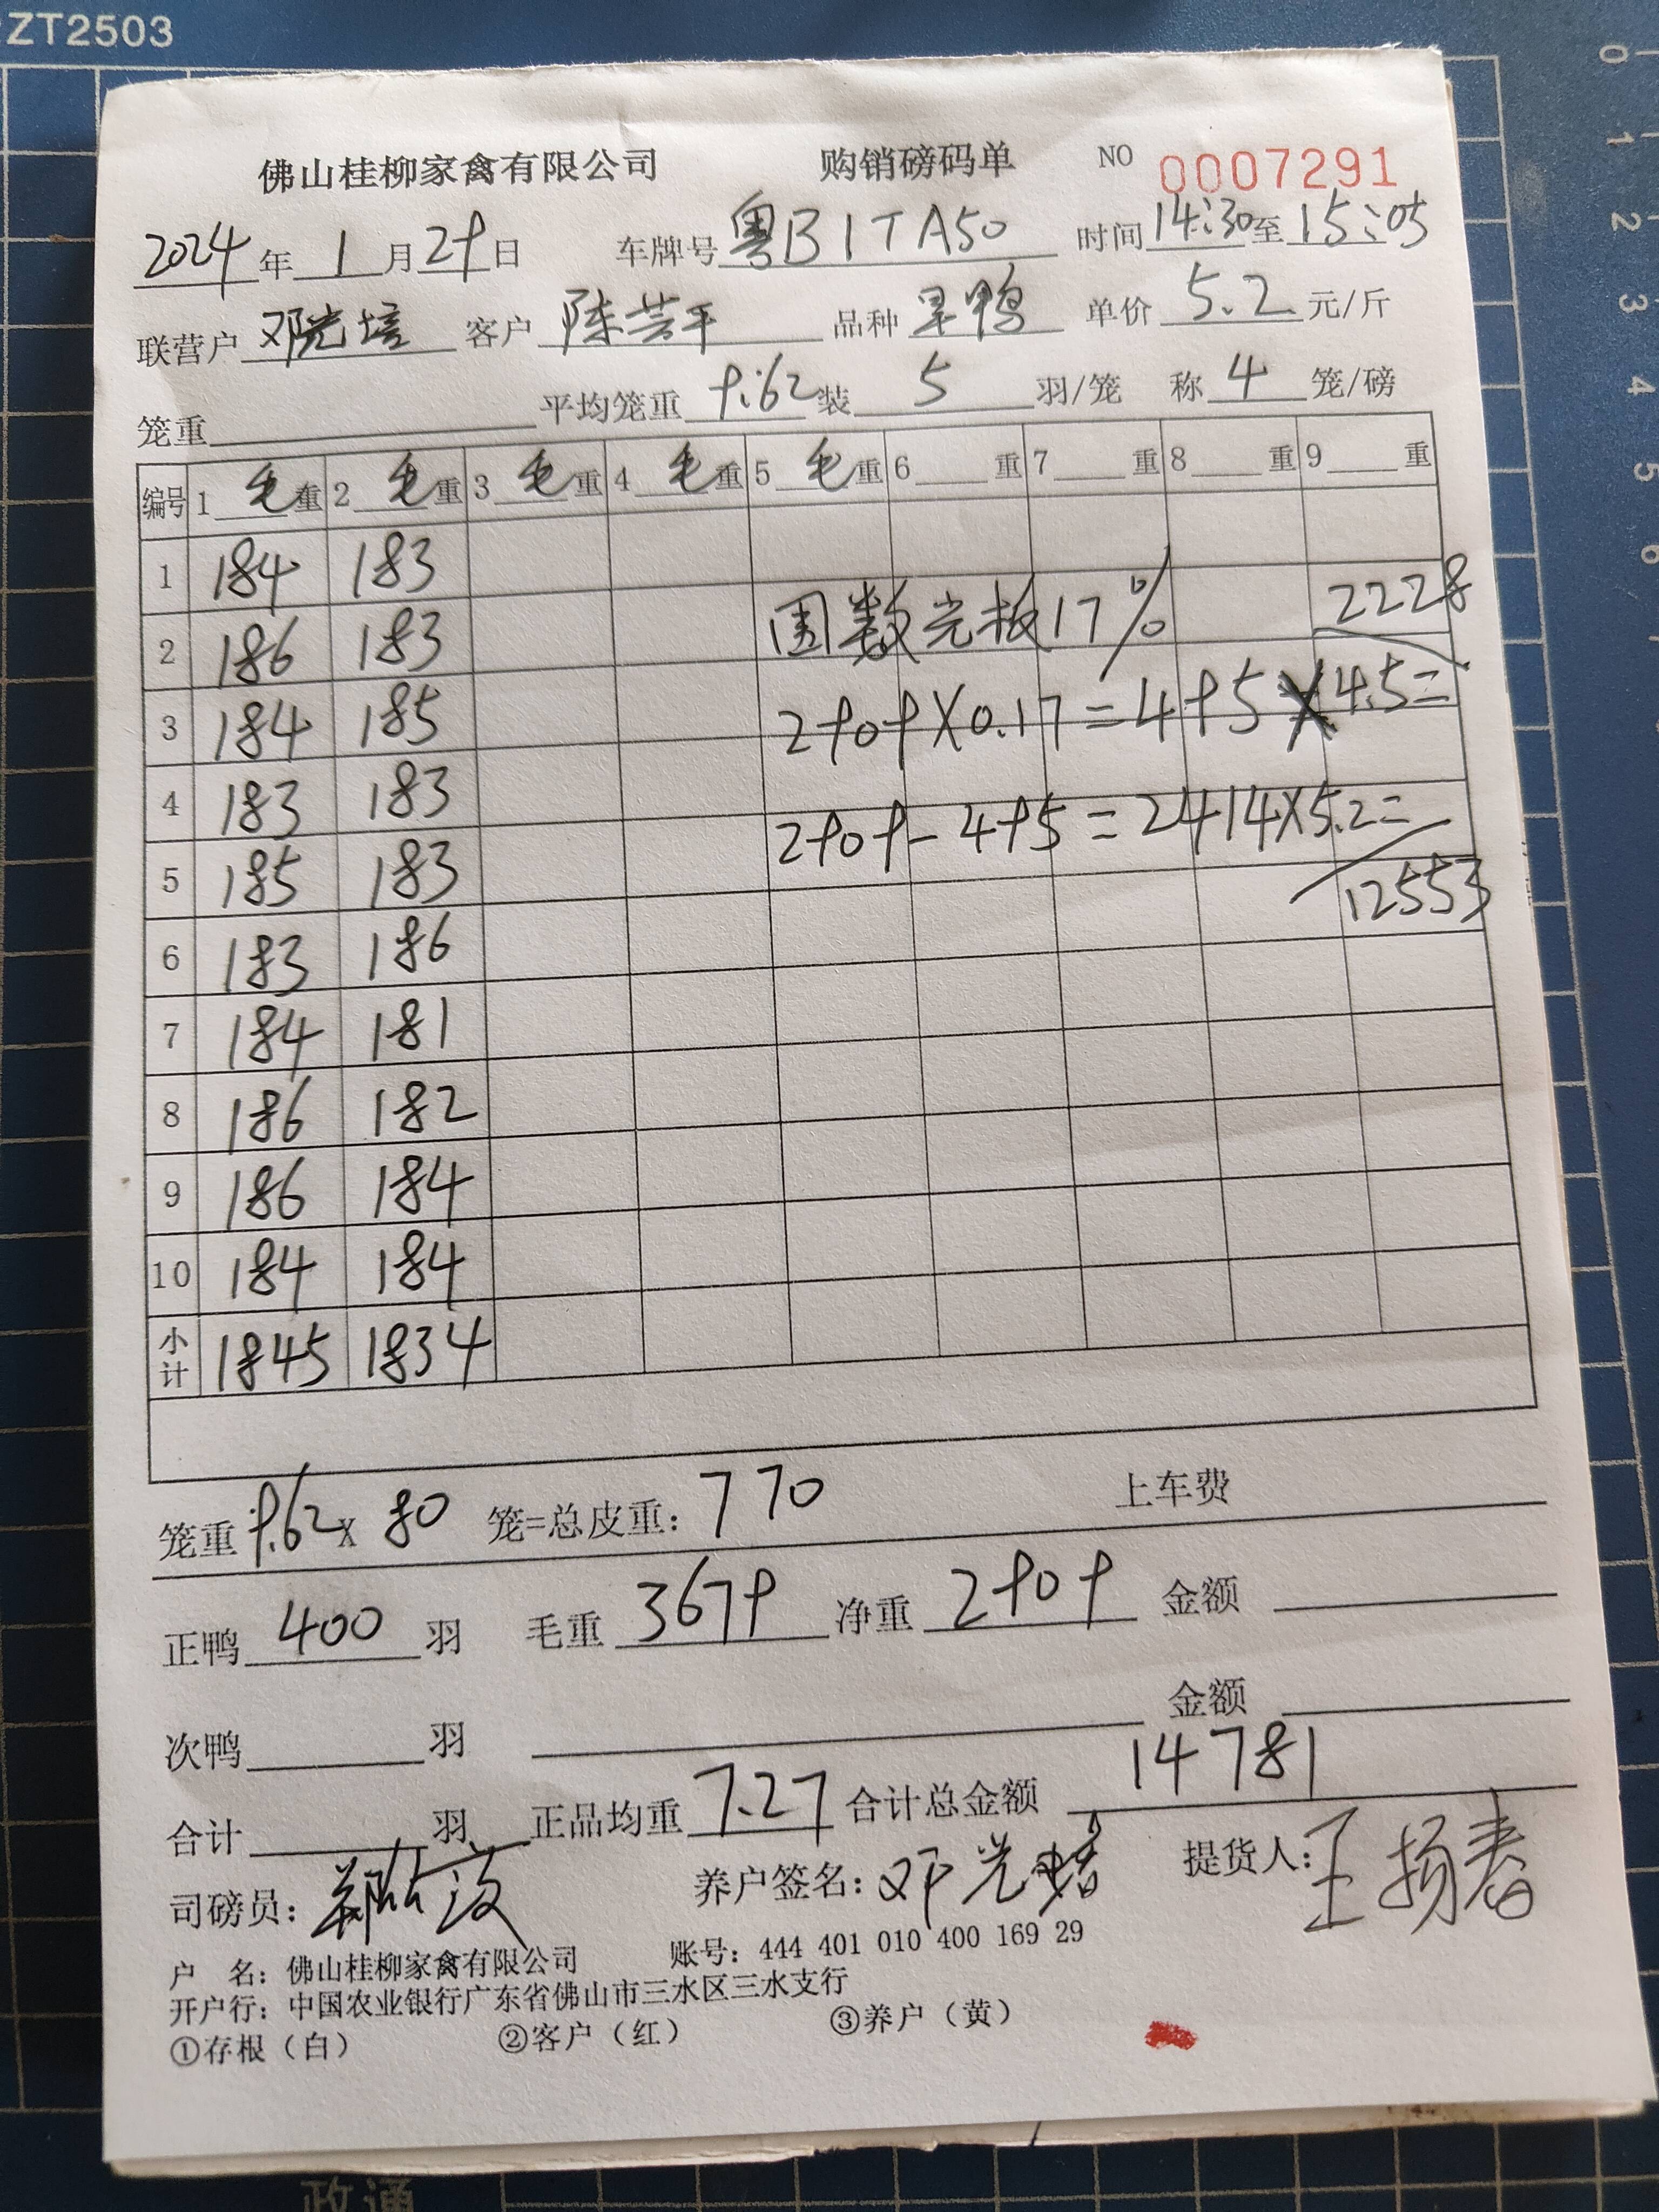 ZT2503
佛山桂柳家禽有限公司 购销磅码单 NO 0007291
2024年1月29日 车牌号粤B1TA50 时间14:30至15:05
联营户邓光培 客户陈芸平 品种 鸭 单价5.2元/斤
笼重 平均笼重9.62装5羽/笼 称4笼/磅
编号 1毛重 2毛重 3毛重 4毛重 5毛重 6重 7重 8重 9重
1 184 183
2 186 183 国数光板17% 2228
3 184 185 2909X0.17=495X4.5=
4 183 183 2909-495=2414X5.2=
5 185 183 12553
6 183 186
7 184 181
8 186 182
9 186 184
10 184 184
小计 1845 1834
笼重9.62X80笼=总皮重:770 上车费
正鸭400羽 毛重3679净重2909 金额
次鸭 羽 金额
合计 羽 正品均重7.27合计总金额14781
司磅员: 养户签名:邓光培 提货人:王扬春
户 名:佛山桂柳家禽有限公司 账号:444 401 010 400 169 29
开户行:中国农业银行广东省佛山市三水区三水支行
①存根(白) ②客户(红) ③养户(黄)
0
1
2
3
4
5
6
政通